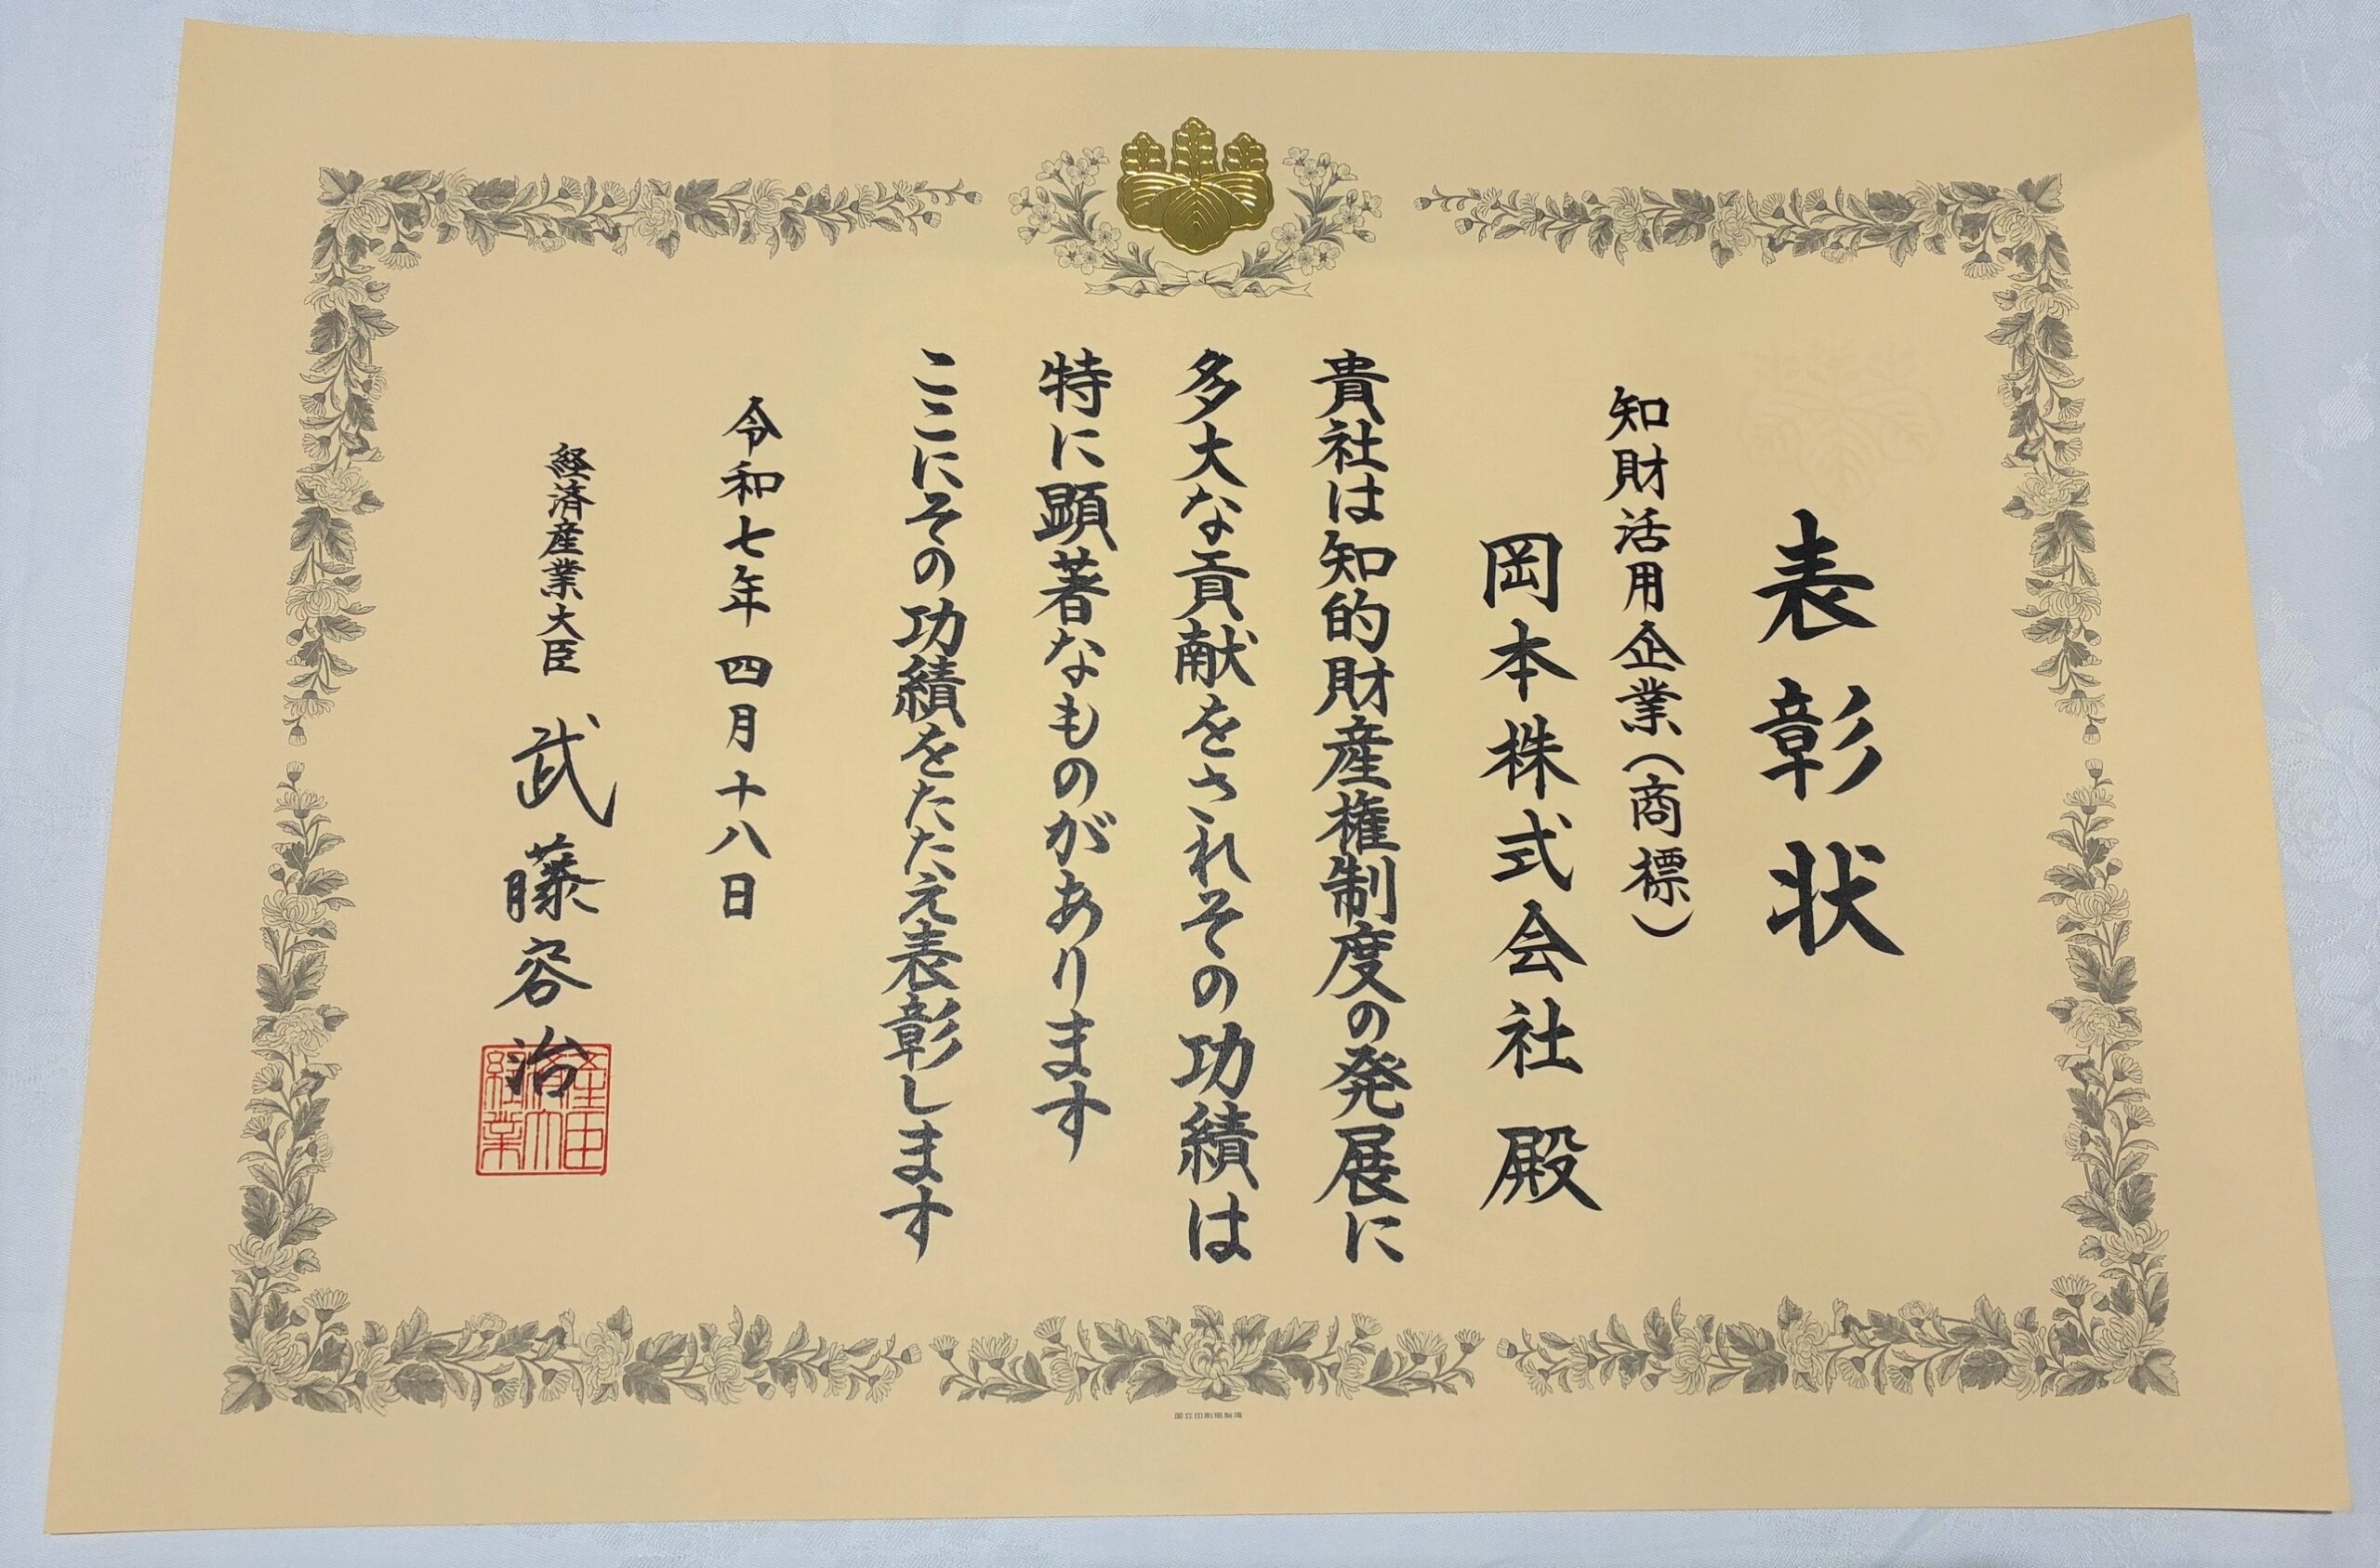 表彰状
知財活用企業(商標)
岡本株式会社 殿
貴社は知的財産権制度の発展に
多大な貢献をされその功績は
特に顕著なものがあります
ここにその功績をたたえ表彰します
令和七年 四月 十八日
経済産業大臣 武藤容治
国立印刷局製造